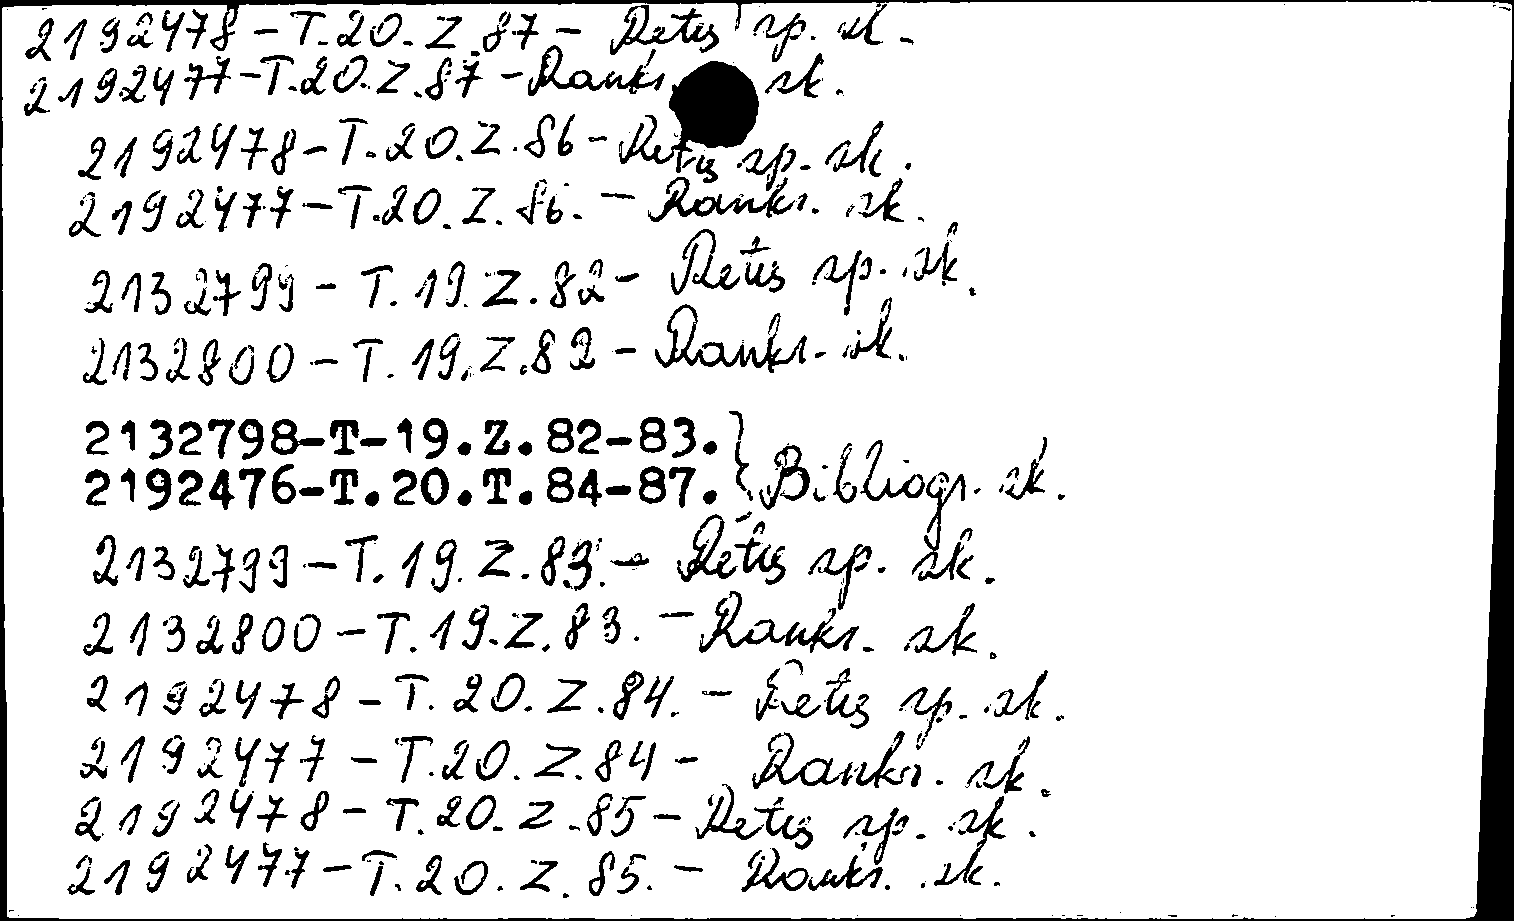 2192478-T.20.Z.87- Retųs sp. sk.
2192477-T.20.Z.87-Rankr. sk.
2192478-T.20.Z.86-Retųs sp. sk.
2192477-T.20.Z.86. - Rankr. sk.
2132799 - T.19.Z.82- Retųs sp. sk.
2132800 - T.19.Z.82 - Rankr. sk.
2132798-T-19.Z.82-83.
2192476-T.20.T.84-87. } Bibliogr. sk.
2132799 - T.19.Z.83. - Retųs sp. sk.
2132800 - T.19.Z.83. - Rankr. sk.
2192478 - T.20.Z.84. - Retųs sp. sk.
2192477 - T.20.Z.84 - Rankr. sk.
2192478 - T.20.Z.85 - Retųs sp. sk.
2192477 - T.20.Z.85. - Rankr. sk.